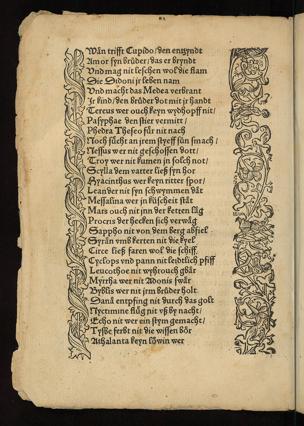 Wän trifft Cupido/den entzyndt
Amor syn brüder/das er bryndt
Vnd mag nit leschen wol die flam
Die Didoni jr leben nam
Vnd macht das Medea verbrant
Jr kind/den brůder dot mit jr handt
Tereus wer ouch keyn wydhopff nit/
Pasyphae den stier vermitt/
Phedra Theseo für nit nach
Noch sůcht an jrem styeff sůn smach/
Nessus wer nit geschossen dott/
Troy wer nit kumen jn solch not/
Scylla dem vatter ließ syn hor
Hyacinthus wer keyn ritter spor/
Leander nit syn schwymmen dät
Messalina wer jn küscheit stät
Mars ouch nit jnn der ketten läg
Procris der hecken sich verwäg
Sappho nit von dem berg abfiel
Syrän vmb kerten nit die kyel
Circe ließ faren wol die schiff.
Cyclops vnd pann nit leidtlich pfiff
Leucothoe nit wyhrouch gbär
Myrrha wer nit Adonis swär
Byblis wer nit jrm brůder holt
Danä entpfing nit durch das golt
Nyctimine flüg nit vß by nacht/
Echo nit wer ein stym gemacht/
Tysbe ferbt nit die wissen bör
Athalanta keyn löwin wer